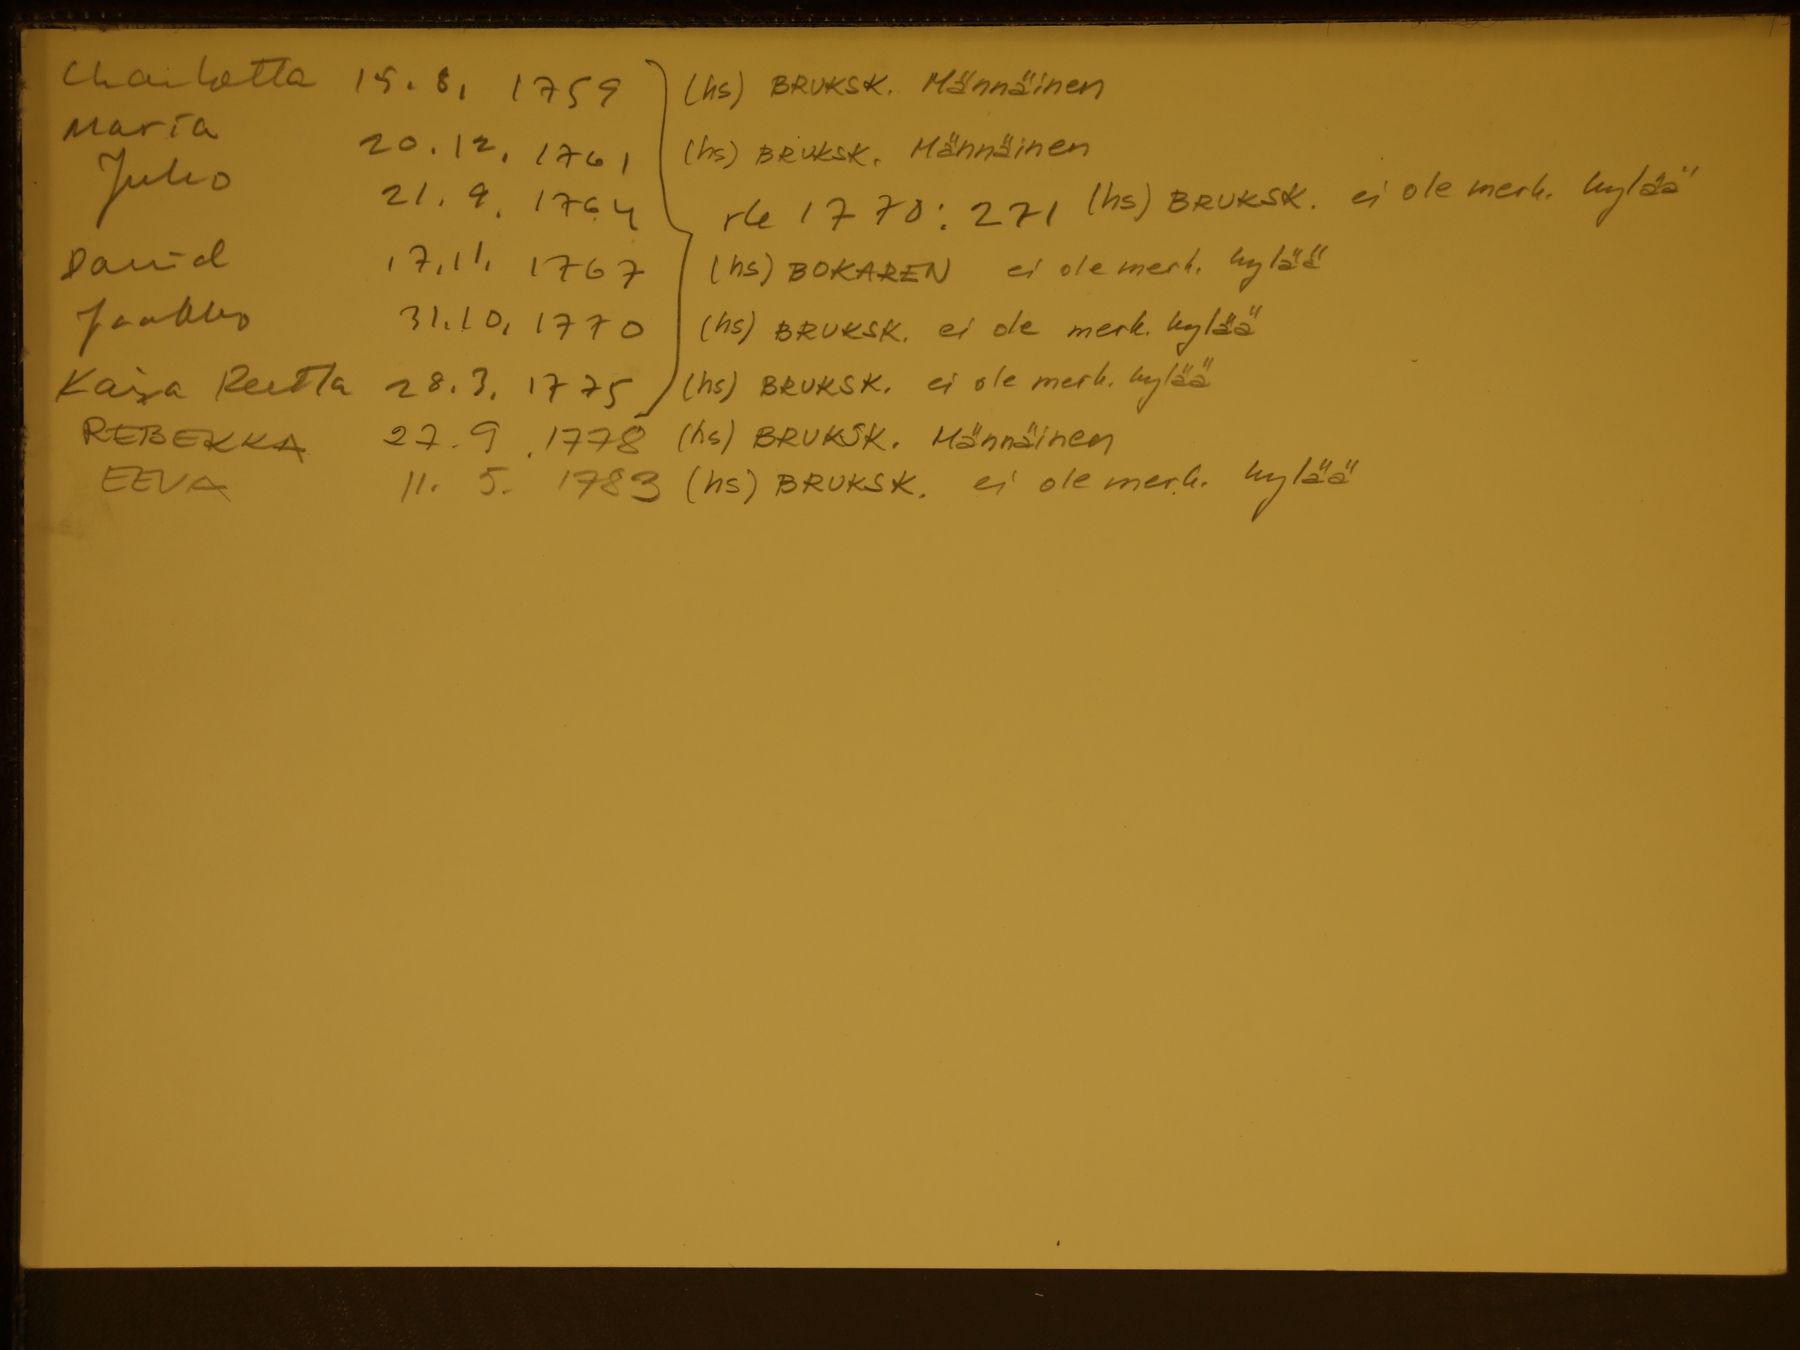 Charlotta 15.8. 1759 (hs) BRUKSK. Männäinen
Maria 20.12. 1761 (hs) BRUKSK. Männäinen
Juho 21.9. 1764 rk 1770: 271 (hs) BRUKSK. ei ole merk. kylää
David 17.11. 1767 (hs) BOKAREN ei ole merk. kylää
Jaakko 31.10. 1770 (hs) BRUKSK. ei ole merk. kylää
Kaisa Reetta 28.3. 1775 (hs) BRUKSK. ei ole merk. kylää
REBEKKA 27.9.1778 (hs) BRUKSK. Männäinen
EEVA 11. 5. 1783 (hs) BRUKSK. ei ole merk. kylää